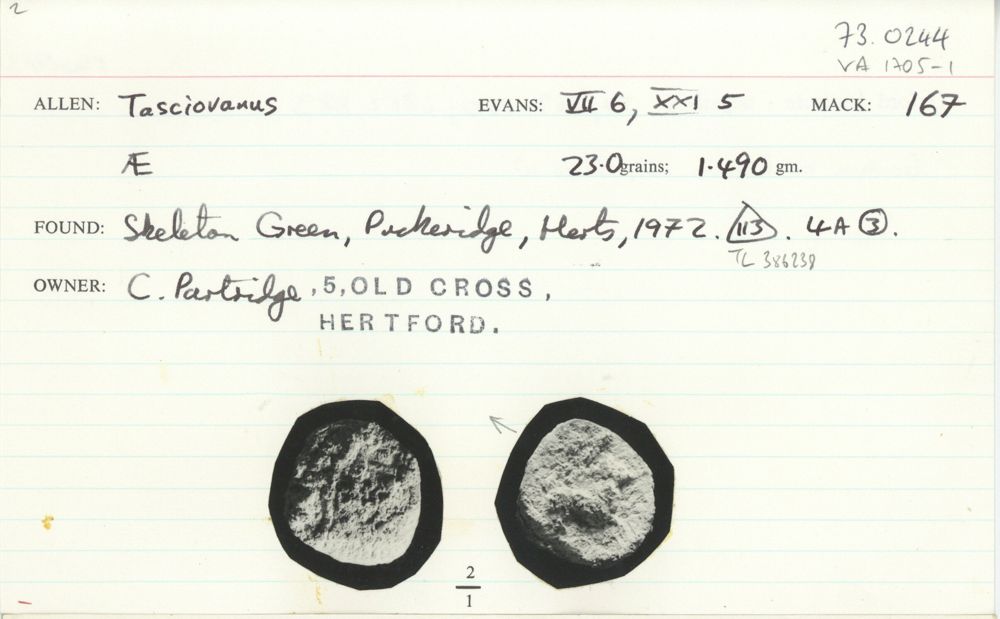 2
73.0244
VA 1705-1
ALLEN: Tasciovanus EVANS: VII 6, XXI 5 MACK: 167
Æ 23.0 grains; 1.490 gm.
FOUND: Skeleton Green, Puckeridge, Herts, 1972. 113. 4A 3.
TL 386238
OWNER: C. Partridge, 5, OLD CROSS,
HERTFORD.
2
1